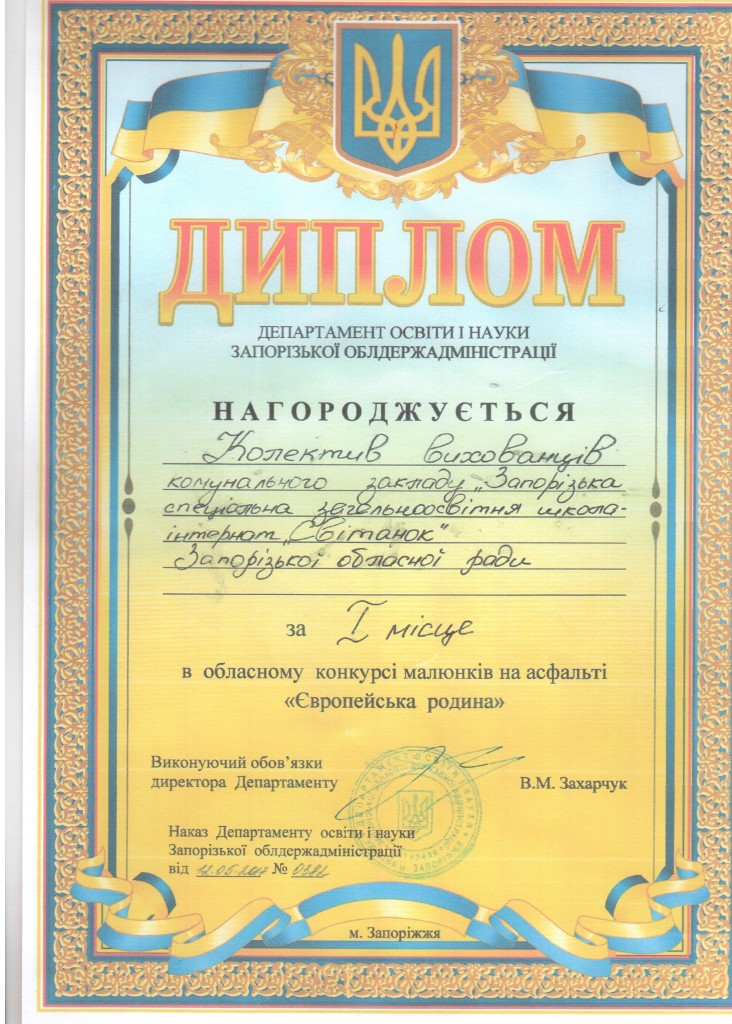 ДИПЛОМ
ДЕПАРТАМЕНТ ОСВІТИ І НАУКИ
ЗАПОРІЗЬКОЇ ОБЛДЕРЖАДМІНІСТРАЦІЇ
НАГОРОДЖУЄТЬСЯ
Колектив вихованців
комунального закладу „Запорізька
спеціальна загальноосвітня школа-
інтернат „Світанок"
Запорізької обласної ради
за І місце
в обласному конкурсі малюнків на асфальті
«Європейська родина»
Виконуючий обов’язки
директора Департаменту
В.М. Захарчук
Наказ Департаменту освіти і науки
Запорізької облдержадміністрації
від №
м. Запоріжжя